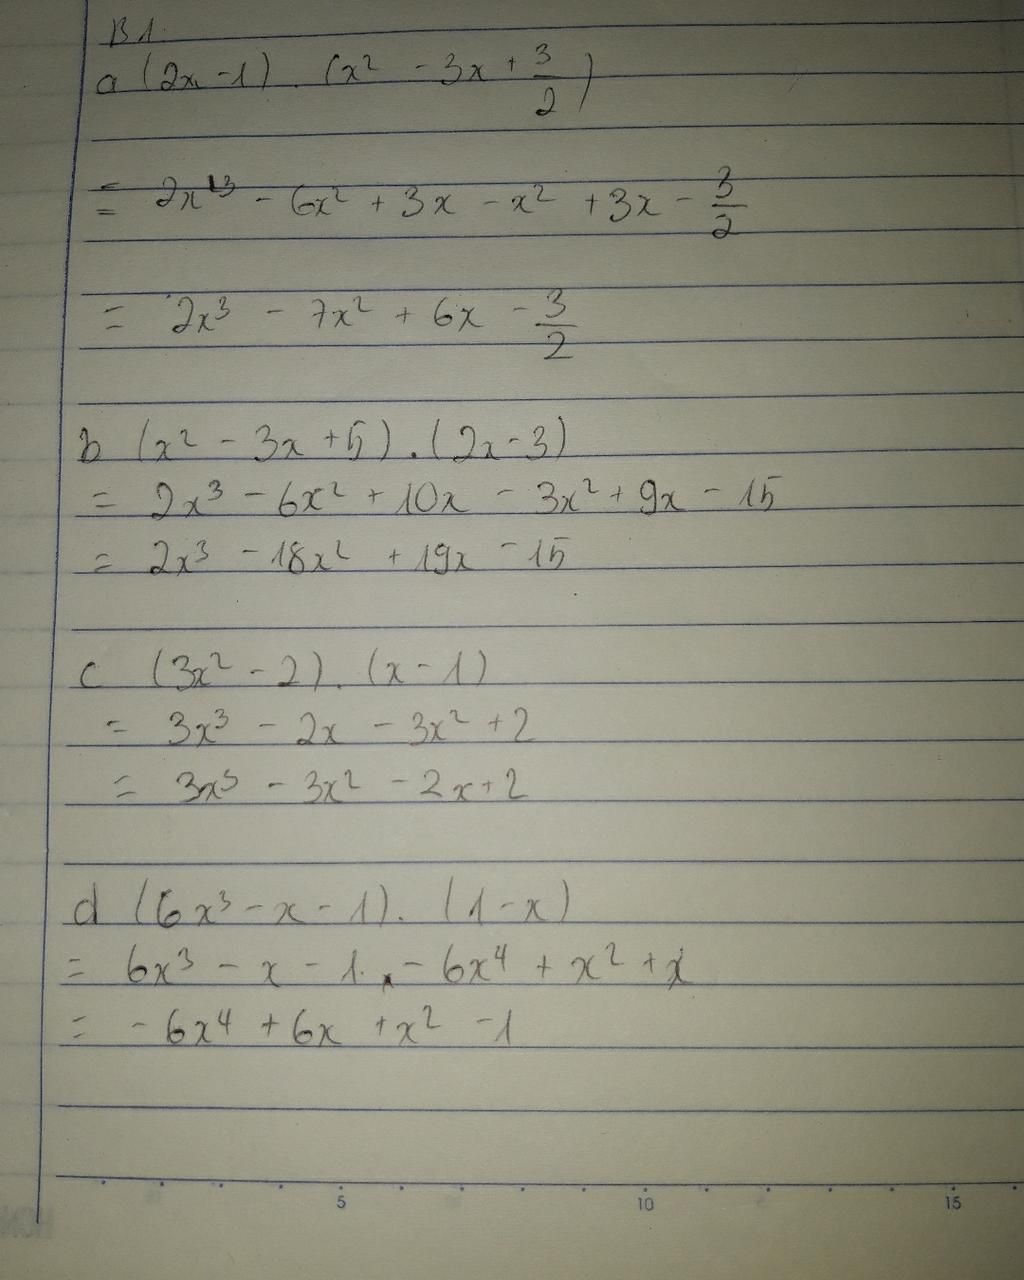 B1.
a (2x - 1) . (x² - 3x + 3/2)
= 2x³ - 6x² + 3x - x² + 3x - 3/2
= 2x³ - 7x² + 6x - 3/2
b (x² - 3x + 5) . (2x - 3)
= 2x³ - 6x² + 10x - 3x² + 9x - 15
= 2x³ - 18x² + 19x - 15
c (3x² - 2) . (x - 1)
= 3x³ - 2x - 3x² + 2
= 3x³ - 3x² - 2x + 2
d (6x³ - x - 1) . (1 - x)
= 6x³ - x - 1 - 6x⁴ + x² + x
= - 6x⁴ + 6x + x² - 1
5 10 15